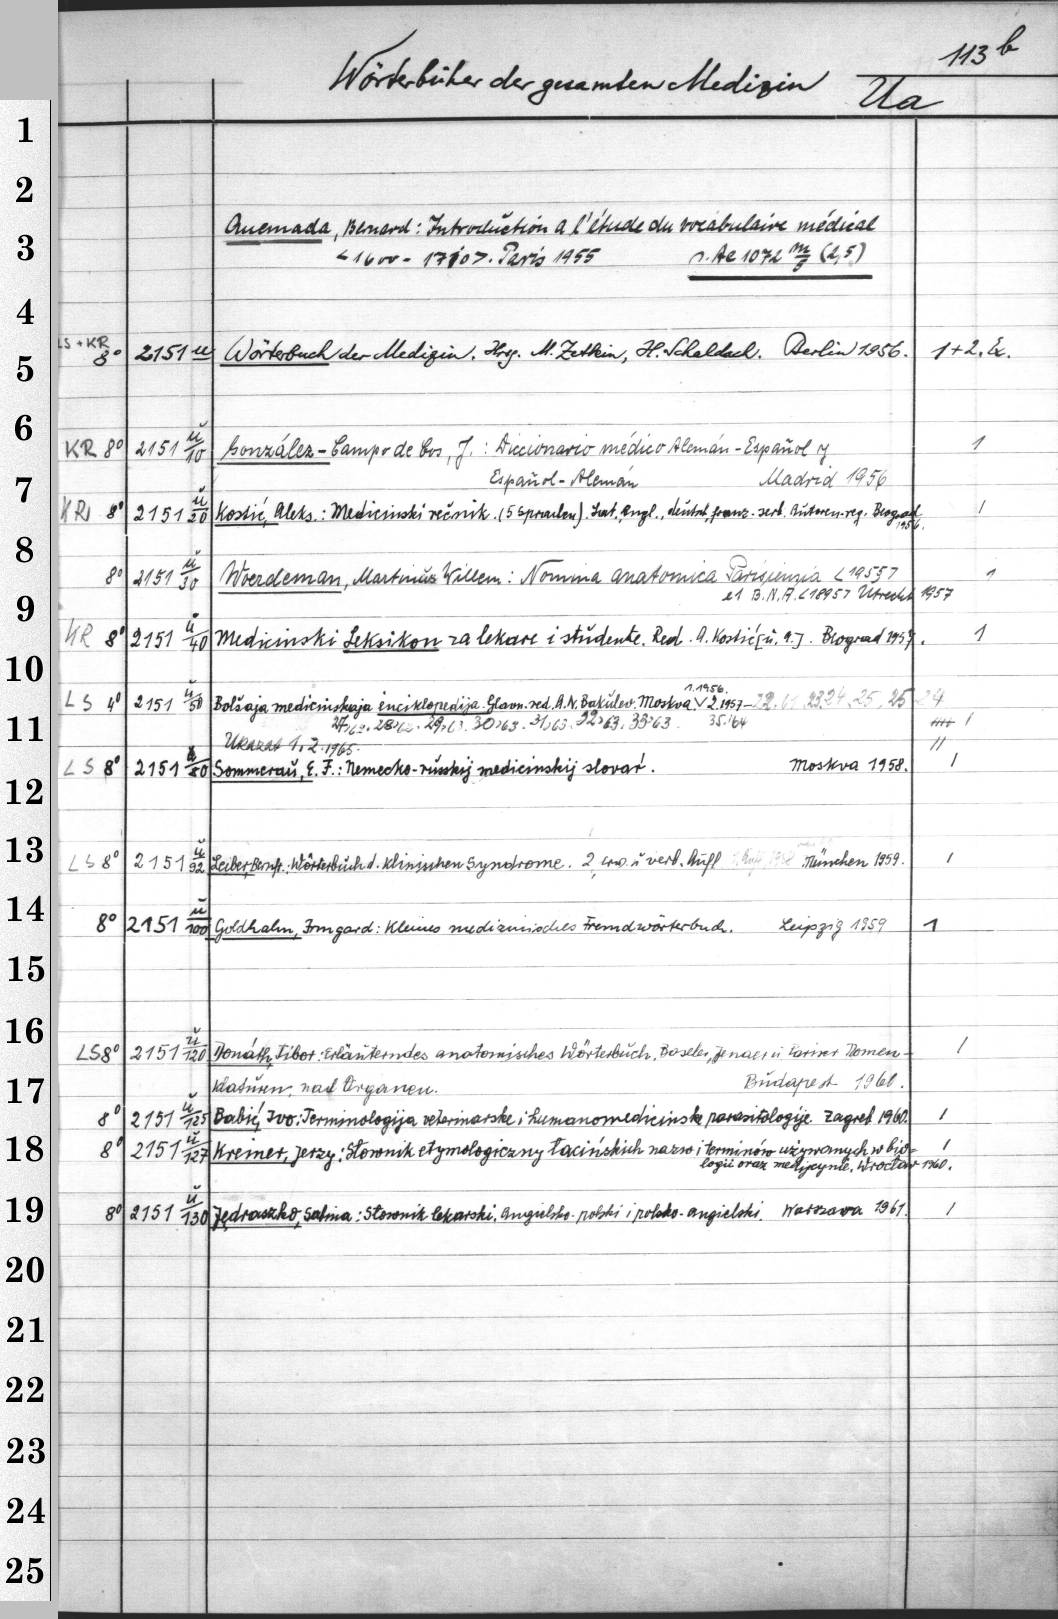 113 b
Wörterbücher der gesamten Medizin
Ua
1
2
Quemada, Bernard: Introduction a l'étude du vocabulaire médical
3
<1600-1710>. Paris 1955 s. Ae 1072 m/5 (2,5)
4
LS + KR
8° 2151 u Wörterbuch der Medizin. Hrsg. M. Zetkin, H. Schaldach. Berlin 1956. 1+2. Ex.
5
6
KR 8° 2151 u/10 González-Campo de Cos, J.: Diccionario médico Alemán-Español y 1
Español-Alemán Madrid 1956
7
KR 8° 2151 u/20 Kostić, Aleks.: Medicinski rečnik. (5 Sprachen). Lat., engl., deutsch, franz. serb. Autoren-reg. Beograd 1
1956.
8
8° 2151 u/30 Woerdeman, Martinus Willem: Nomina anatomica Parisiensia <1955> 1
et B.N.A. <1895> Utrecht 1957
9
KR 8° 2151 u/40 Medicinski Leksikon za lekare i studente. Red. A. Kostić [u. a.]. Beograd 1957. 1
10
1.1956.
LS 4° 2151 u/50 Bolšaja medicinskaja ėnciklopedija. Glavn. red. A. N. Bakulev. Moskva 2.1957- 22.61 23.24. 25. 25 24
11
27,62. 28,62. 29,63. 30,63. 31,63. 32,63. 33,63. 35.'64
Ukazat 1.2.1965.
LS 8° 2151 u/80 Sommerau, E. F.: Nemecko-russkij medicinskij slovar'. Moskva 1958. 1
12
13
LS 8° 2151 u/92 Leiber, Bernf.: Wörterbuch d. klinischen Syndrome. 2. erw. u verb. Aufl München 1959. 1
14
8° 2151 u/100 Goldhahn, Irmgard: Kleines medizinisches Fremdwörterbuch. Leipzig 1959 1
15
16
LS 8° 2151 u/120 Donáth, Tibor: Erläuterndes anatomisches Wörterbuch, Baseler, Jenaer u Pariser Nomen- 1
17
klaturen, nach Organen. Budapest 1960.
8° 2151 u/125 Babić, Ivo: Terminologija veterinarske i humanomedicinske parasitologije. Zagreb 1960. 1
18
8° 2151 u/127 Kreiner, Jerzy: Słownik etymologiczny łacińskich nazw i terminów używanych w bio- 1
logii oraz medycynie. Wrocław 1960.
19
8° 2151 u/130 Jędraszko, Sabina: Słownik lekarski. Angielsko-polski i polsko-angielski. Warszawa 1961. 1
20
21
22
23
24
25